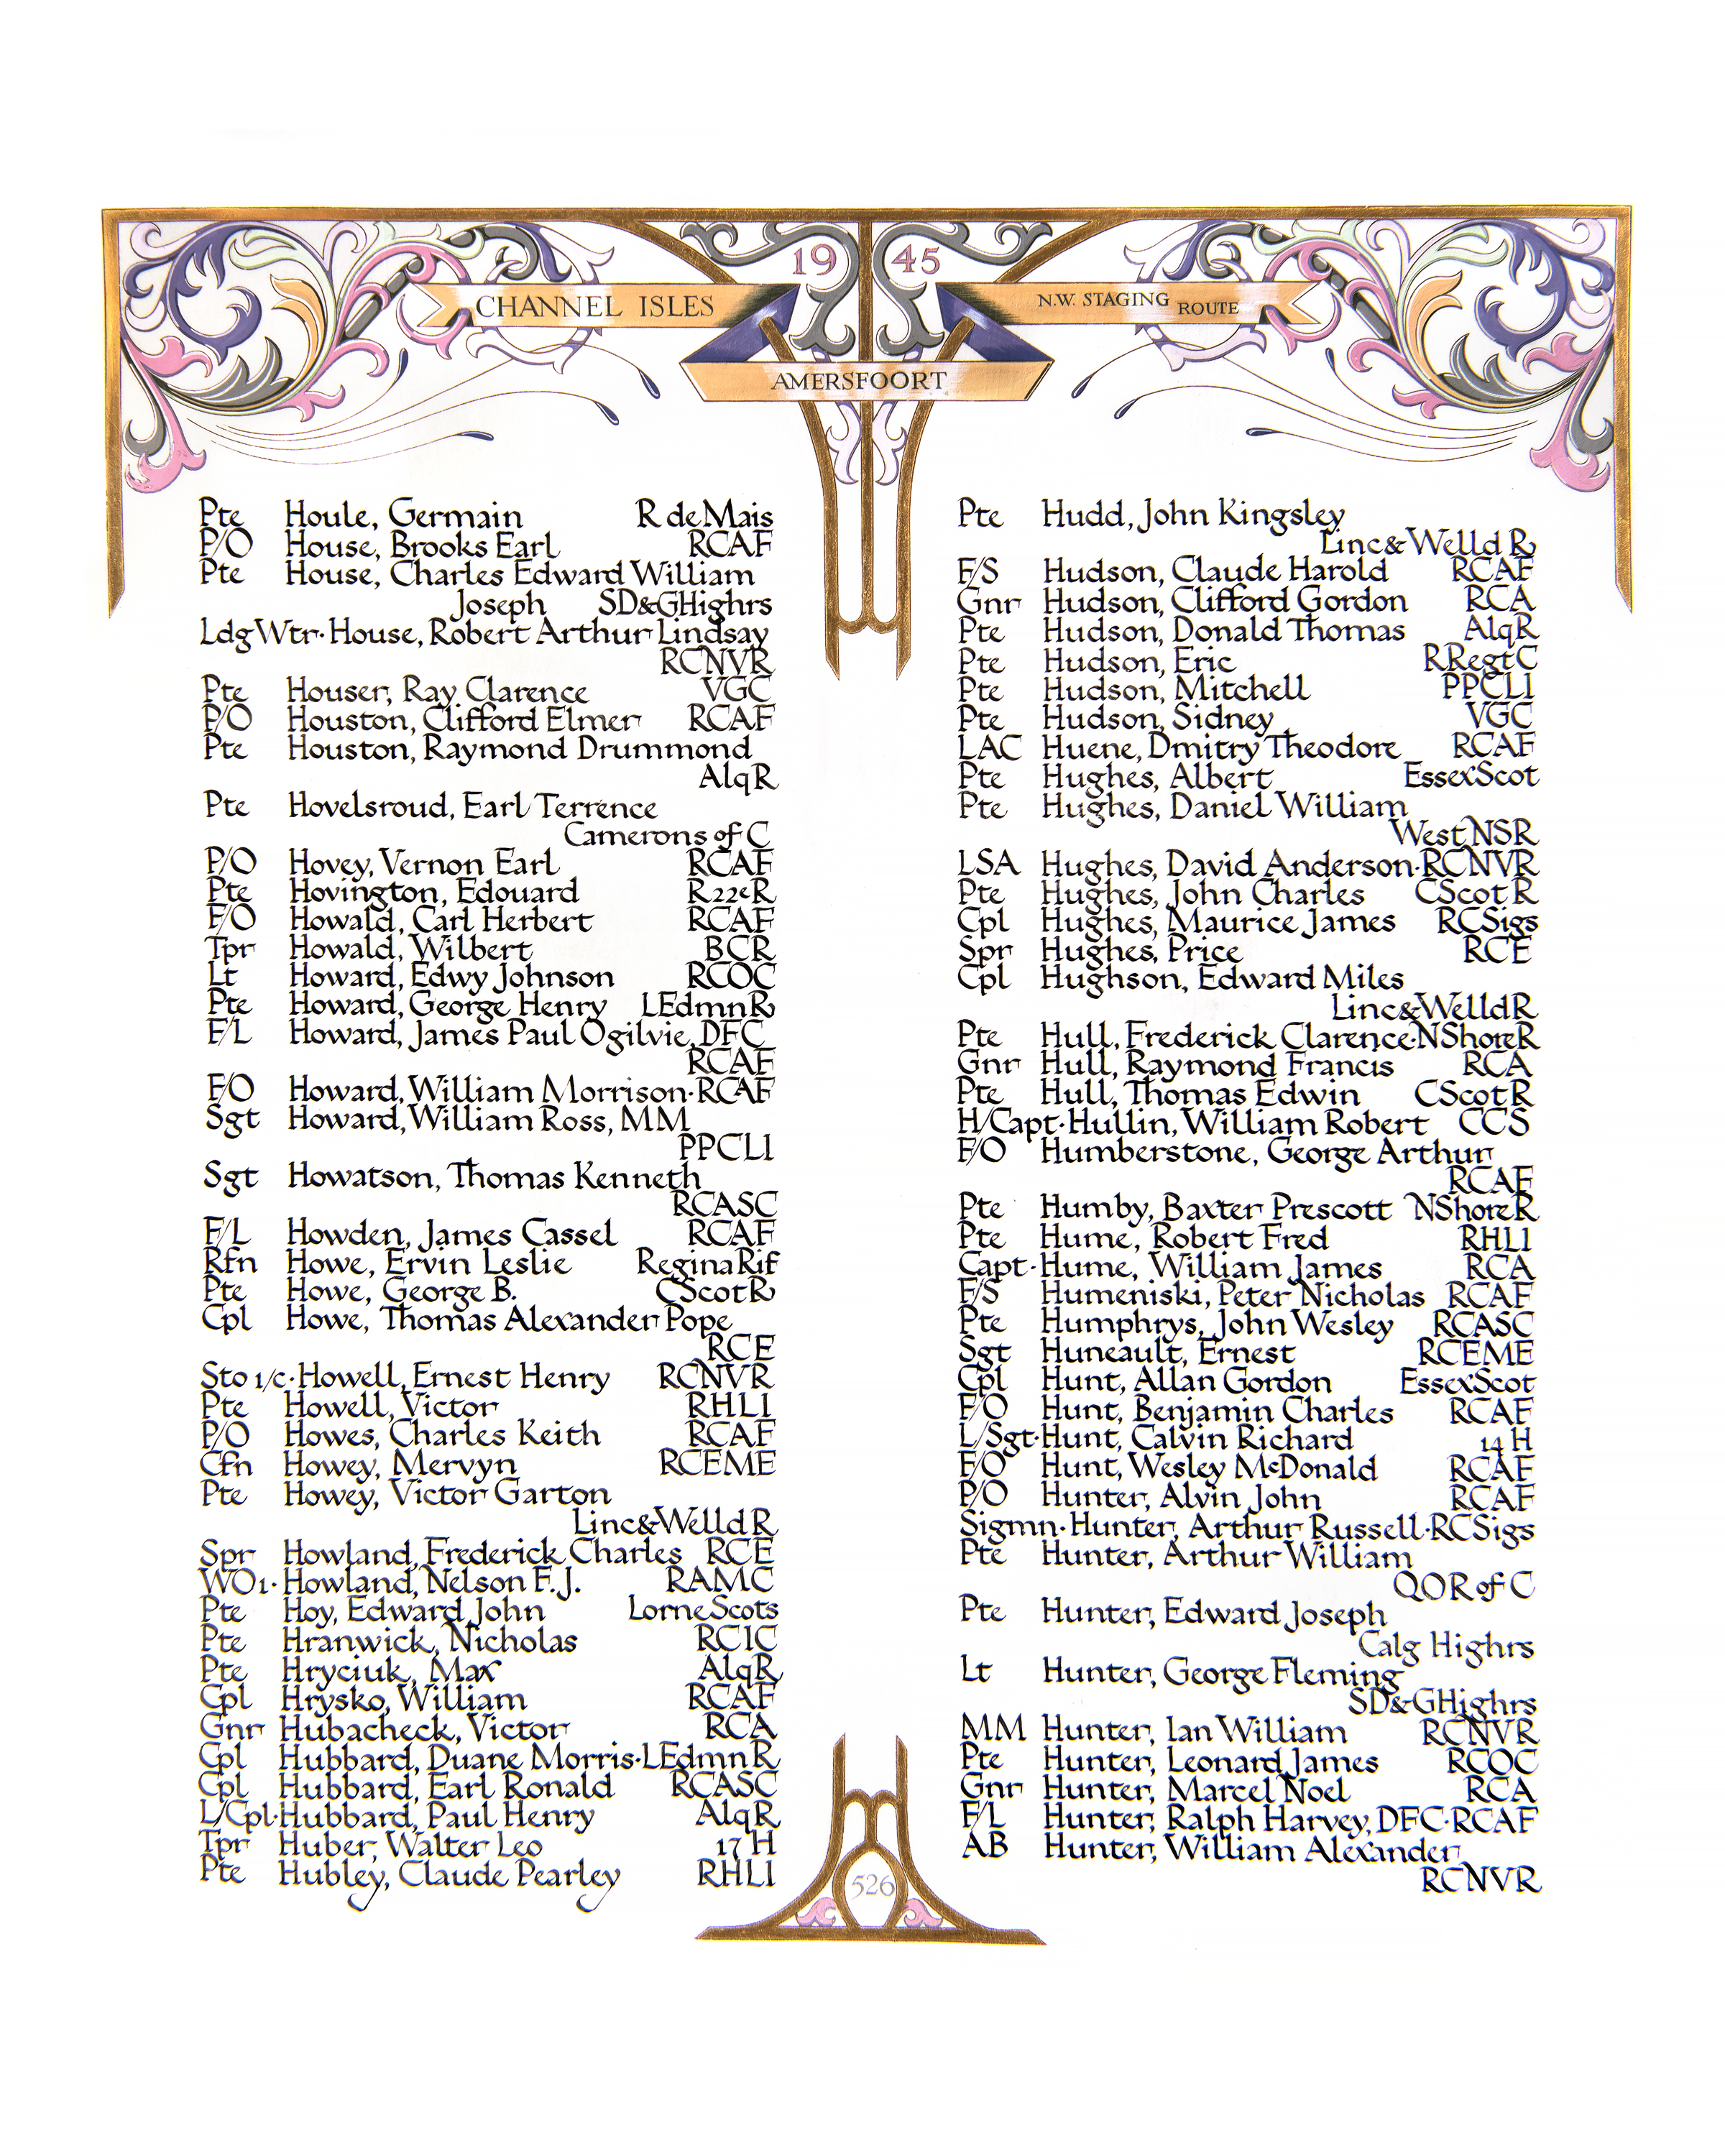 19 45
CHANNEL ISLES
N.W. STAGING ROUTE
AMERSFOORT
Pte Houle, Germain R de Mais
P/O House, Brooks Earl RCAF
Pte House, Charles Edward William
Joseph SD&GHighrs
LdgWtr·House, Robert Arthur Lindsay
RCNVR
Pte Houser, Ray Clarence VGC
P/O Houston, Clifford Elmer RCAF
Pte Houston, Raymond Drummond
AlqR
Pte Hovelsroud, Earl Terrence
Camerons of C
P/O Hovey, Vernon Earl RCAF
Pte Hovington, Edouard R22eR
F/O Howald, Carl Herbert RCAF
Tpr Howald, Wilbert BCR
Lt Howard, Edwy Johnson RCOC
Pte Howard, George Henry LEdmnR
F/L Howard, James Paul Ogilvie, DFC
RCAF
F/O Howard, William Morrison·RCAF
Sgt Howard, William Ross, MM
PPCLI
Sgt Howatson, Thomas Kenneth
RCASC
F/L Howden, James Cassel RCAF
Rfn Howe, Ervin Leslie ReginaRif
Pte Howe, George B. CScotR
Cpl Howe, Thomas Alexander Pope
RCE
Sto 1/c·Howell, Ernest Henry RCNVR
Pte Howell, Victor RHLI
P/O Howes, Charles Keith RCAF
Cfn Howey, Mervyn RCEME
Pte Howey, Victor Garton
Linc&WelldR
Spr Howland, Frederick Charles RCE
WO1·Howland, Nelson F.J. RAMC
Pte Hoy, Edward John LorneScots
Pte Hranwick, Nicholas RCIC
Pte Hryciuk, Max AlqR
Cpl Hrysko, William RCAF
Gnr Hubacheck, Victor RCA
Cpl Hubbard, Duane Morris·LEdmnR
Cpl Hubbard, Earl Ronald RCASC
L/Cpl·Hubbard, Paul Henry AlqR
Tpr Huber, Walter Leo 17 H
Pte Hubley, Claude Pearley RHLI
Pte Hudd, John Kingsley
Linc&WelldR
F/S Hudson, Claude Harold RCAF
Gnr Hudson, Clifford Gordon RCA
Pte Hudson, Donald Thomas AlqR
Pte Hudson, Eric RRegtC
Pte Hudson, Mitchell PPCLI
Pte Hudson, Sidney VGC
LAC Huene, Dmitry Theodore RCAF
Pte Hughes, Albert EssexScot
Pte Hughes, Daniel William
West NSR
LSA Hughes, David Anderson·RCNVR
Pte Hughes, John Charles CScotR
Cpl Hughes, Maurice James RCSigs
Spr Hughes, Price RCE
Cpl Hughson, Edward Miles
Linc&WelldR
Pte Hull, Frederick Clarence·NShoreR
Gnr Hull, Raymond Francis RCA
Pte Hull, Thomas Edwin CScotR
H/Capt·Hullin, William Robert CCS
F/O Humberstone, George Arthur
RCAF
Pte Humby, Baxter Prescott NShoreR
Pte Hume, Robert Fred RHLI
Capt·Hume, William James RCA
F/S Humeniski, Peter Nicholas RCAF
Pte Humphrys, John Wesley RCASC
Sgt Huneault, Ernest RCEME
Cpl Hunt, Allan Gordon EssexScot
F/O Hunt, Benjamin Charles RCAF
L/Sgt·Hunt, Calvin Richard 14 H
F/O Hunt, Wesley McDonald RCAF
P/O Hunter, Alvin John RCAF
Sigmn·Hunter, Arthur Russell·RCSigs
Pte Hunter, Arthur William
QOR of C
Pte Hunter, Edward Joseph
Calg Highrs
Lt Hunter, George Fleming
SD&GHighrs
MM Hunter, Ian William RCNVR
Pte Hunter, Leonard James RCOC
Gnr Hunter, Marcel Noel RCA
F/L Hunter, Ralph Harvey, DFC·RCAF
AB Hunter, William Alexander
RCNVR
526